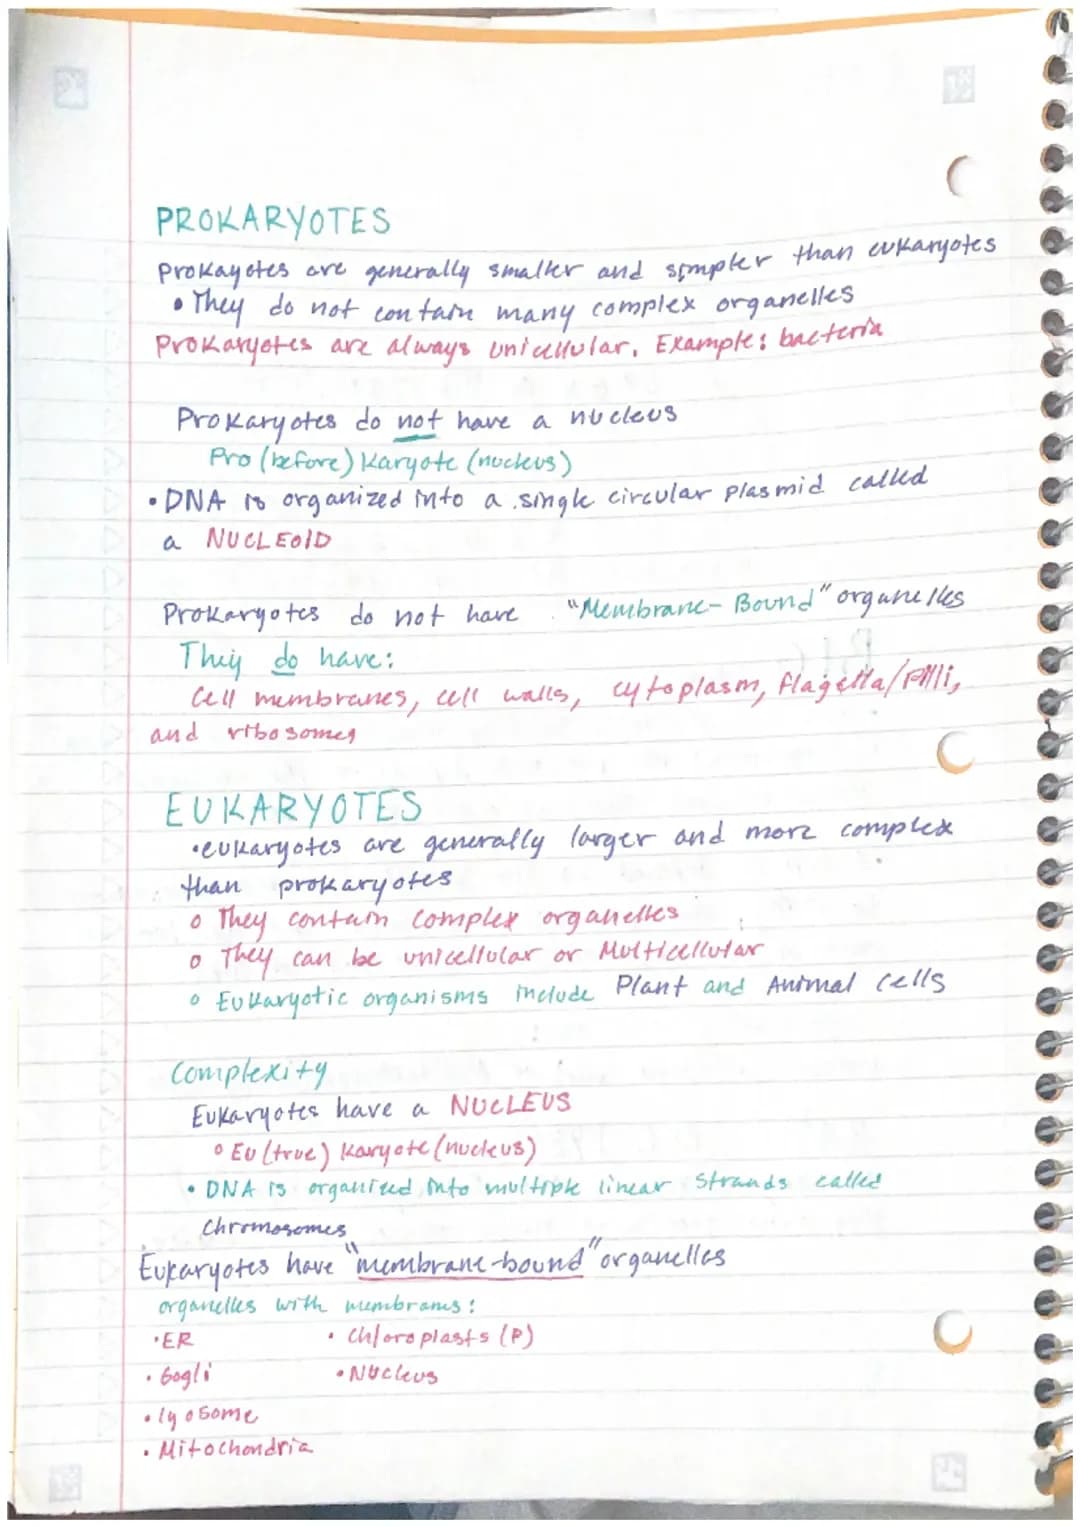 PROKARYOTES
Prokayotes are generally smaller and simpler than eukaryotes
• They do not contain many complex organelles
Prokaryotes are always unicellular. Example: bacteria
Prokaryotes do not have a nucleus
Pro (before) Karyote (nucleus)
• DNA is organized into a single circular plasmid called
a NUCLEOID
Prokaryotes do not have "Membrane-Bound" organelles
They do have:
Cell membranes, cell walls, cytoplasm, flagella/Pilli,
and ribosomes
EUKARYOTES
• eukaryotes are generally larger and more complex
than prokaryotes
o They contain complex organelles
o They can be unicellular or Multicellular
o Eukaryotic organisms include Plant and Animal cells
Complexity
Eukaryotes have a NUCLEUS
o Eu (true) Karyote (nucleus)
• DNA is organized into multiple linear strands called
Chromosomes
Eukaryotes have "membrane-bound" organelles
organelles with membranes:
• ER • Chloroplasts (P)
• Gogli • Nucleus
• lyosome
• Mitochondria